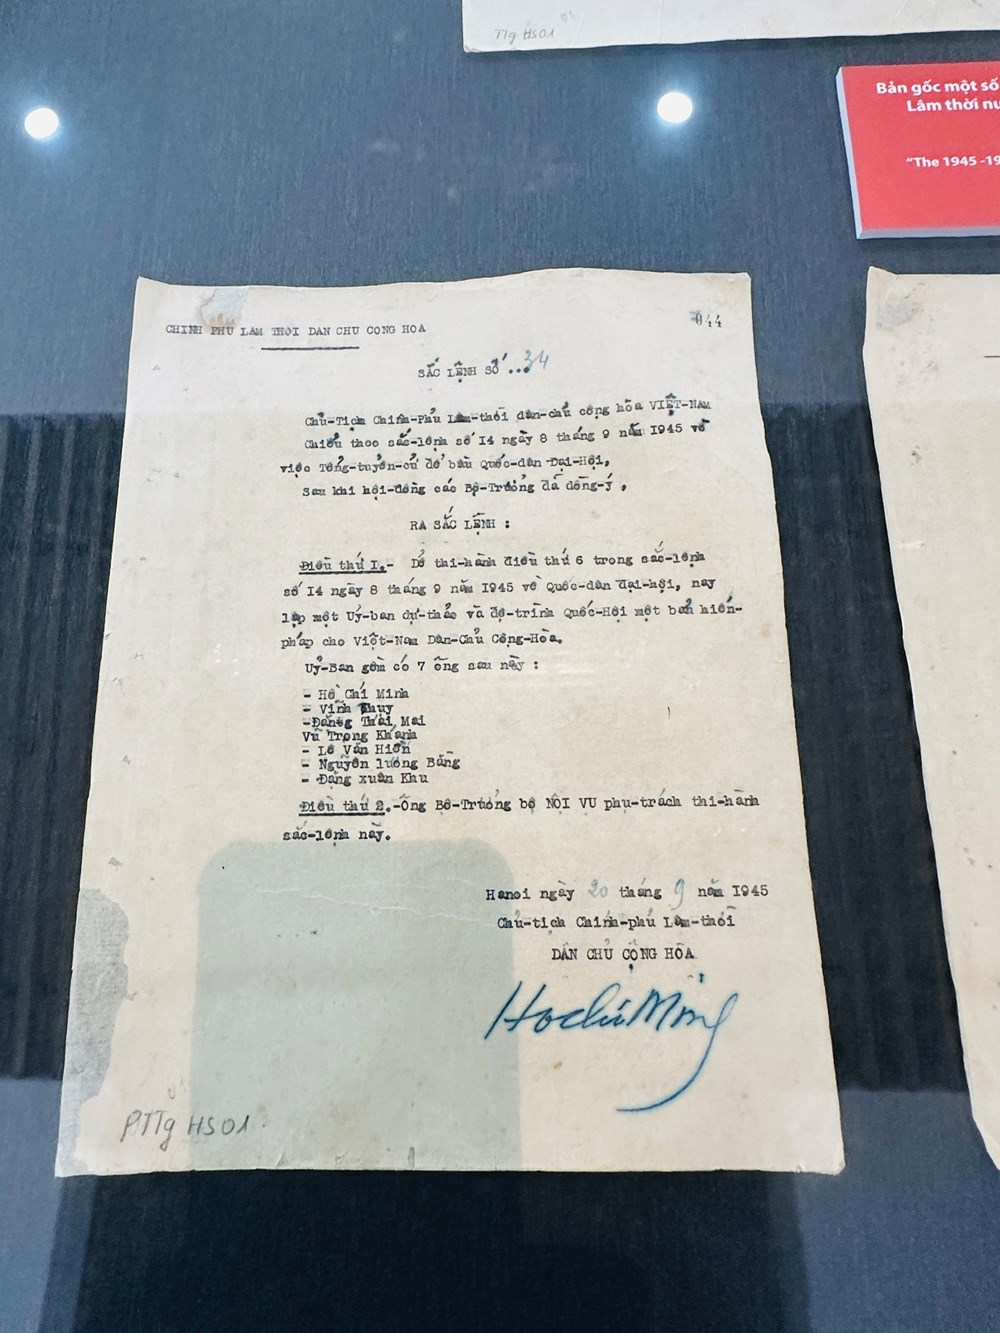 TTg HS01
Bản gốc một số
Lâm thời nư
"The 1945 -19
CHINH PHU LAM THOI DAN CHU CONG HOA
044
SẮC LỆNH SỐ ..34
Chủ-Tịch Chính-Phủ Lâm-thời dân-chủ cộng hòa VIỆT-NAM
Chiếu theo sắc-lệnh số 14 ngày 8 tháng 9 năm 1945 về
việc Tổng-tuyển-cử để bầu Quốc-dân Đại-Hội,
Sau khi hội-đồng các Bộ-Trưởng đã đồng-ý,
RA SẮC LỆNH :
Điều thứ I.- Để thi-hành điều thứ 6 trong sắc-lệnh
số 14 ngày 8 tháng 9 năm 1945 về Quốc-dân đại-hội, nay
lập một Uỷ-ban dự-thảo và đệ-trình Quốc-Hội một bản hiến-
pháp cho Việt-Nam Dân-Chủ Cộng-Hòa.
Uỷ-Ban gồm có 7 ông sau này :
- Hồ Chí Minh
- Vĩnh Thụy
-Đặng Thai Mai
Vũ Trọng Khánh
- Lê Văn Hiến
- Nguyễn lương Bằng
- Đặng xuân Khu
Điều thứ 2.-Ông Bộ-Trưởng bộ NỘI VỤ phụ-trách thi-hành
sắc-lệnh này.
Hanoi ngày 20 tháng 9 năm 1945
Chủ-tịch Chính-phủ Lâm-thời
DÂN CHỦ CỘNG HÒA
HochíMinh
PTTg HS01